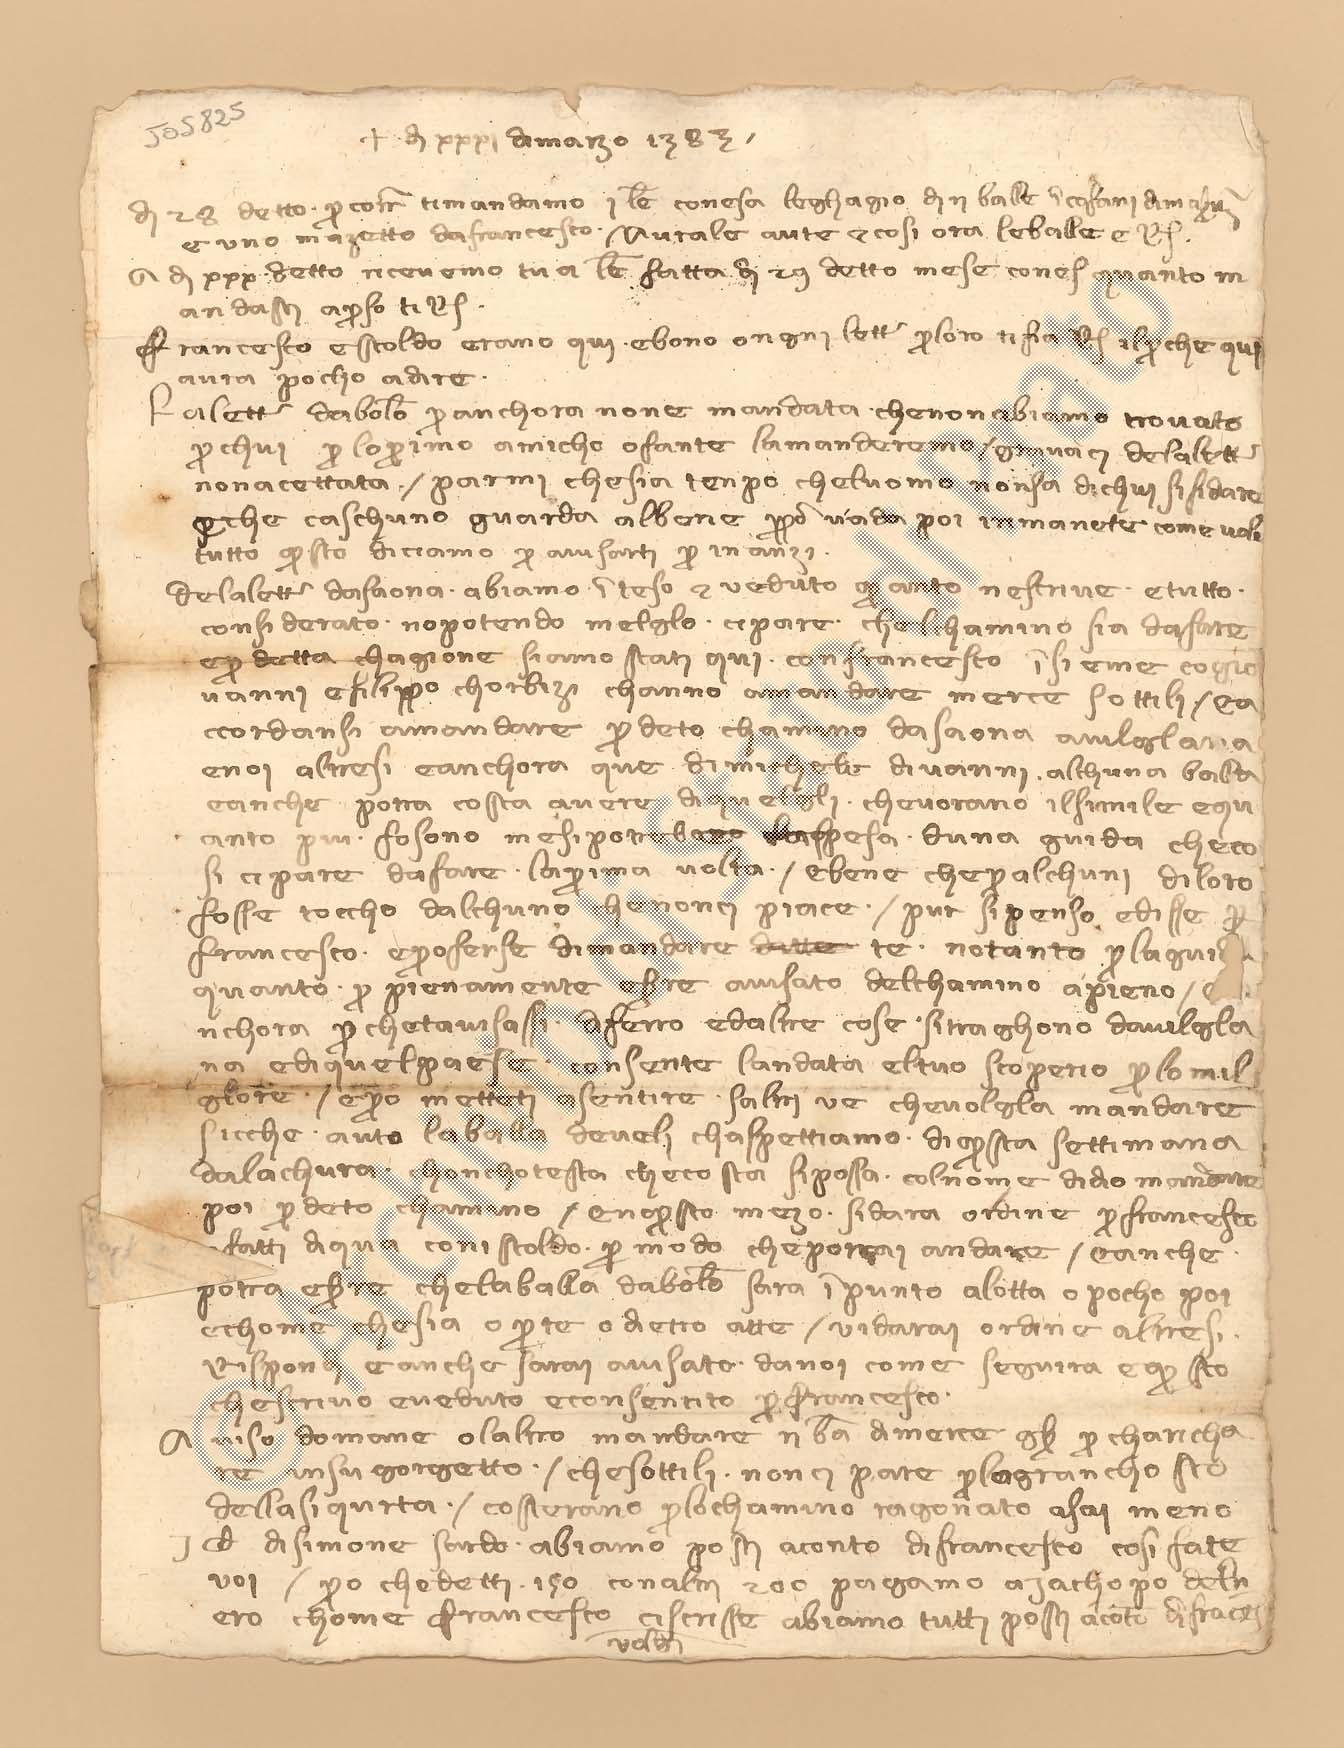 505825
+ dì xxxj di marzo 1383 /
A dì 28 detto per cor. ti mandamo j let. con esa leghagio di ij balle
e uno mazetto da francesco . / l'urale aute e così ora le balle e ris.
A dì xxx detto ricevemo tua let. fatta dì 29 detto mese con es. quanto m
andasti apreso ti ris.
francesco e stoldo erano qui . e bono ongni lett. per loro ti fia ris. il perche qui
aura pocho a dire .
La lett. da bolo. per anchora none mandata . che non abiamo trovato
per chui per lo primo amicho o fante la manderemo / de la lett.
non acettata . / parmi che sia tenpo che l uomo non sa di chui si fidare
perche caschuno guarda al bene propio vada poi inmanete come vole
tutto questo diciamo per avisarti per inanzi .
De la lett. da saona . abiamo inteso e veduto quanto ne scrive . e tutto .
considerato . no potendo melglo . ci pare . che l chamino sia da fare
e per detta chagione siamo stati qui . con francesco insieme co gio
vanni e filippo chorbizi channo a mandare merce sottili / e a
ccordansi a mandare per deto chamino da saona a vilglana
e noi altresi e anchora que di michele di vanni . alchuna balla
e anche potra costa avere di quelgli . che vorano il simile e qu
anto piu . fosono me si potrebano la spesa . duna guida che co
si ci pare da fare . la prima volta . / e bene che per alchuni di loro
fosse toccho dalchuno che non ci piace . / pur si penso e disse per
francesco . e proferse di mandare te . no tanto per la guida
quanto . per pienamente esere avisato del chamino a pieno / e a
nchora perche t avisassi . di ferro e daltre cose . si traghono da vilgla
na e di quel paese . consente l andata e l tuo scoperio per lo mil
glore . / e pero metteti a sentire . s altri ve che volgla mandare
sicche . auto la balla de veli ch aspettiamo . di questa settimana
da lachura . chonchotesta che costa si possa . col nome di dio mandare
poi per deto chamino / e n questo mezo . si dara ordine per francesco
a fatti di qua con istoldo . per modo che potrai andare / e anche .
potra esere che la balla da bolo. sara in punto alotta o pocho poi
e chome che sia o per te o dietro a tte / vi darai ordine altresi .
Rispondi e anche sarai avisato . da noi come seguira e questo
che scrivo e veduto e consentito per francesco .
Aviso domane o l altro mandare ij ba. di merce per charicha
re in su gorgetto . / che sottili . non ci pare per lo grancho sto
della siqurta . / costerano per lo chamino ragonato asai meno
I d di simone sardo . abiamo posti a conto di francesco cosi fate
voi / pero che detti . 150 con altri 200 pagamo a jachopo del n
ero chome francesco ci scrisse abiamo tutti posti a conto di franc.
volgi